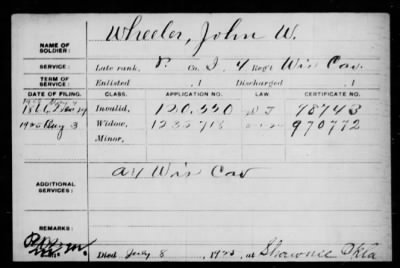 NAME OF SOLDIER: Wheeler, John W.
SERVICE: Late rank, P. Co. I, 4 Reg't Wis Cav.
TERM OF SERVICE: Enlisted , 1 Discharged , 1
DATE OF FILING. CLASS. APPLICATION NO. LAW. CERTIFICATE NO.
Invalid, 120.220 98743
1925 Aug 3 Widow, 1235713 970772
Minor,
ADDITIONAL SERVICES: a 4 Wis Cav
REMARKS:
Died July 8, 1925, at Shawnee Okla